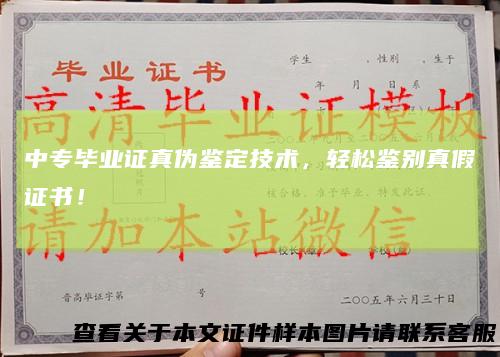 学生 ，性别 ，生于
毕业证书
年 月 日系
高清毕业证模板
中专毕业证真伪鉴定技术，轻松鉴别真假
证书！
核合格，准予毕业，特发此证。
请加本站微信
校长
晋高毕证字第 号
二〇〇五年六月三十日
查看关于本文证件样本图片请联系客服